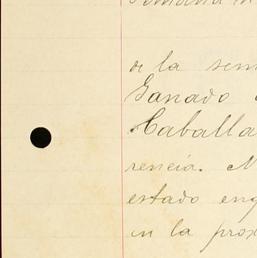 de la sem
Ganado
Caballa
rencia. N
estado eng
en la prox